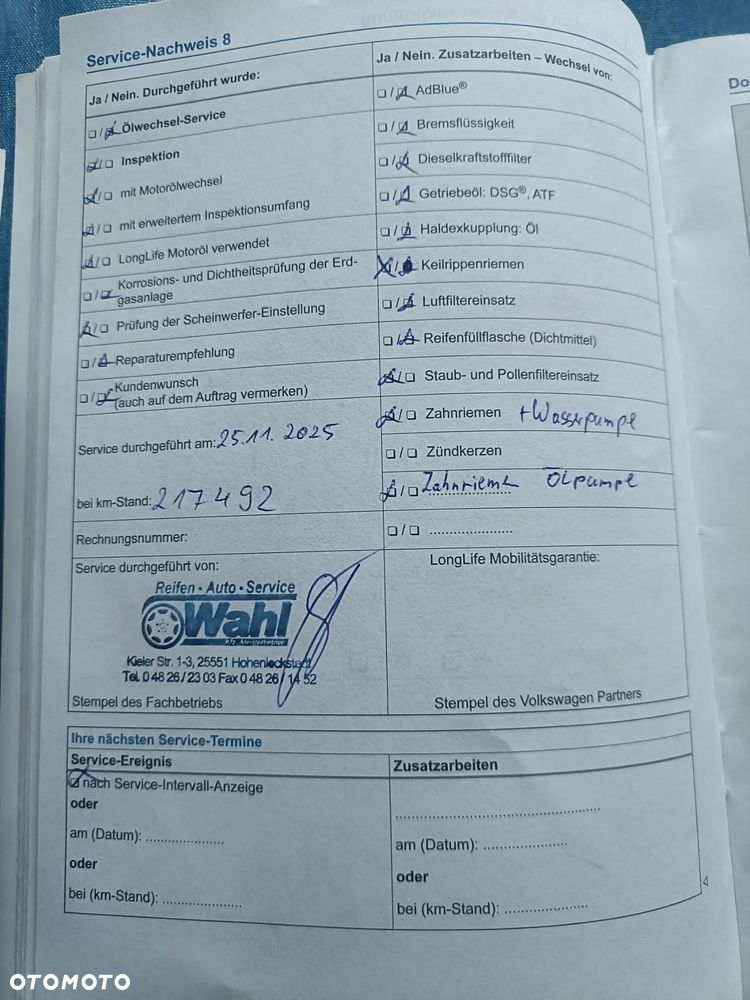 Service-Nachweis 8
Ja / Nein. Durchgeführt wurde:
☐ / ☑ Ölwechsel-Service
☑ / ☐ Inspektion
☑ / ☐ mit Motorölwechsel
☑ / ☐ mit erweitertem Inspektionsumfang
☑ / ☐ LongLife Motoröl verwendet
☐ / ☑ Korrosions- und Dichtheitsprüfung der Erd-
gasanlage
☑ / ☐ Prüfung der Scheinwerfer-Einstellung
☐ / ☑ Reparaturempfehlung
☐ / ☑ Kundenwunsch
(auch auf dem Auftrag vermerken)
Service durchgeführt am: 25.11. 2025
bei km-Stand: 217492
Rechnungsnummer:
Service durchgeführt von:
Reifen • Auto • Service
Wahl
Kfz Meisterbetrieb
Kieler Str. 1-3, 25551 Hohenlockstedt
Tel. 0 48 26 / 23 03 Fax 0 48 26 / 14 52
Stempel des Fachbetriebs
Ja / Nein. Zusatzarbeiten – Wechsel von:
☐ / ☑ AdBlue®
☐ / ☑ Bremsflüssigkeit
☐ / ☑ Dieselkraftstofffilter
☐ / ☑ Getriebeöl: DSG®, ATF
☐ / ☑ Haldexkupplung: Öl
☑ / ☑ Keilrippenriemen
☐ / ☑ Luftfiltereinsatz
☐ / ☑ Reifenfüllflasche (Dichtmittel)
☑ / ☐ Staub- und Pollenfiltereinsatz
☑ / ☐ Zahnriemen + Wasserpumpe
☐ / ☐ Zündkerzen
☑ / ☐ Zahnrieme Ölpumpe
☐ / ☐ .....................
LongLife Mobilitätsgarantie:
Stempel des Volkswagen Partners
Ihre nächsten Service-Termine
Service-Ereignis
☑ nach Service-Intervall-Anzeige
oder
am (Datum): ....................
oder
bei (km-Stand): ....................
Zusatzarbeiten
..................................................
am (Datum): .....................
oder
bei (km-Stand): .....................
Do
OTOMOTO